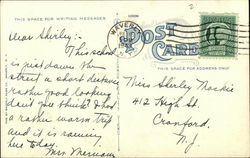 THIS SPACE FOR WRITING MESSAGES
Dear Shirley:-
This school
is just down the
street a short distance
rather good looking
don't you think? I had
a rather warm trip
and it is raining
here today.
Mrs. Merriam
POST
CARD
THIS SPACE FOR ADDRESS ONLY
Miss Shirley Mackie
412 High St.
Cranford,
N.J.